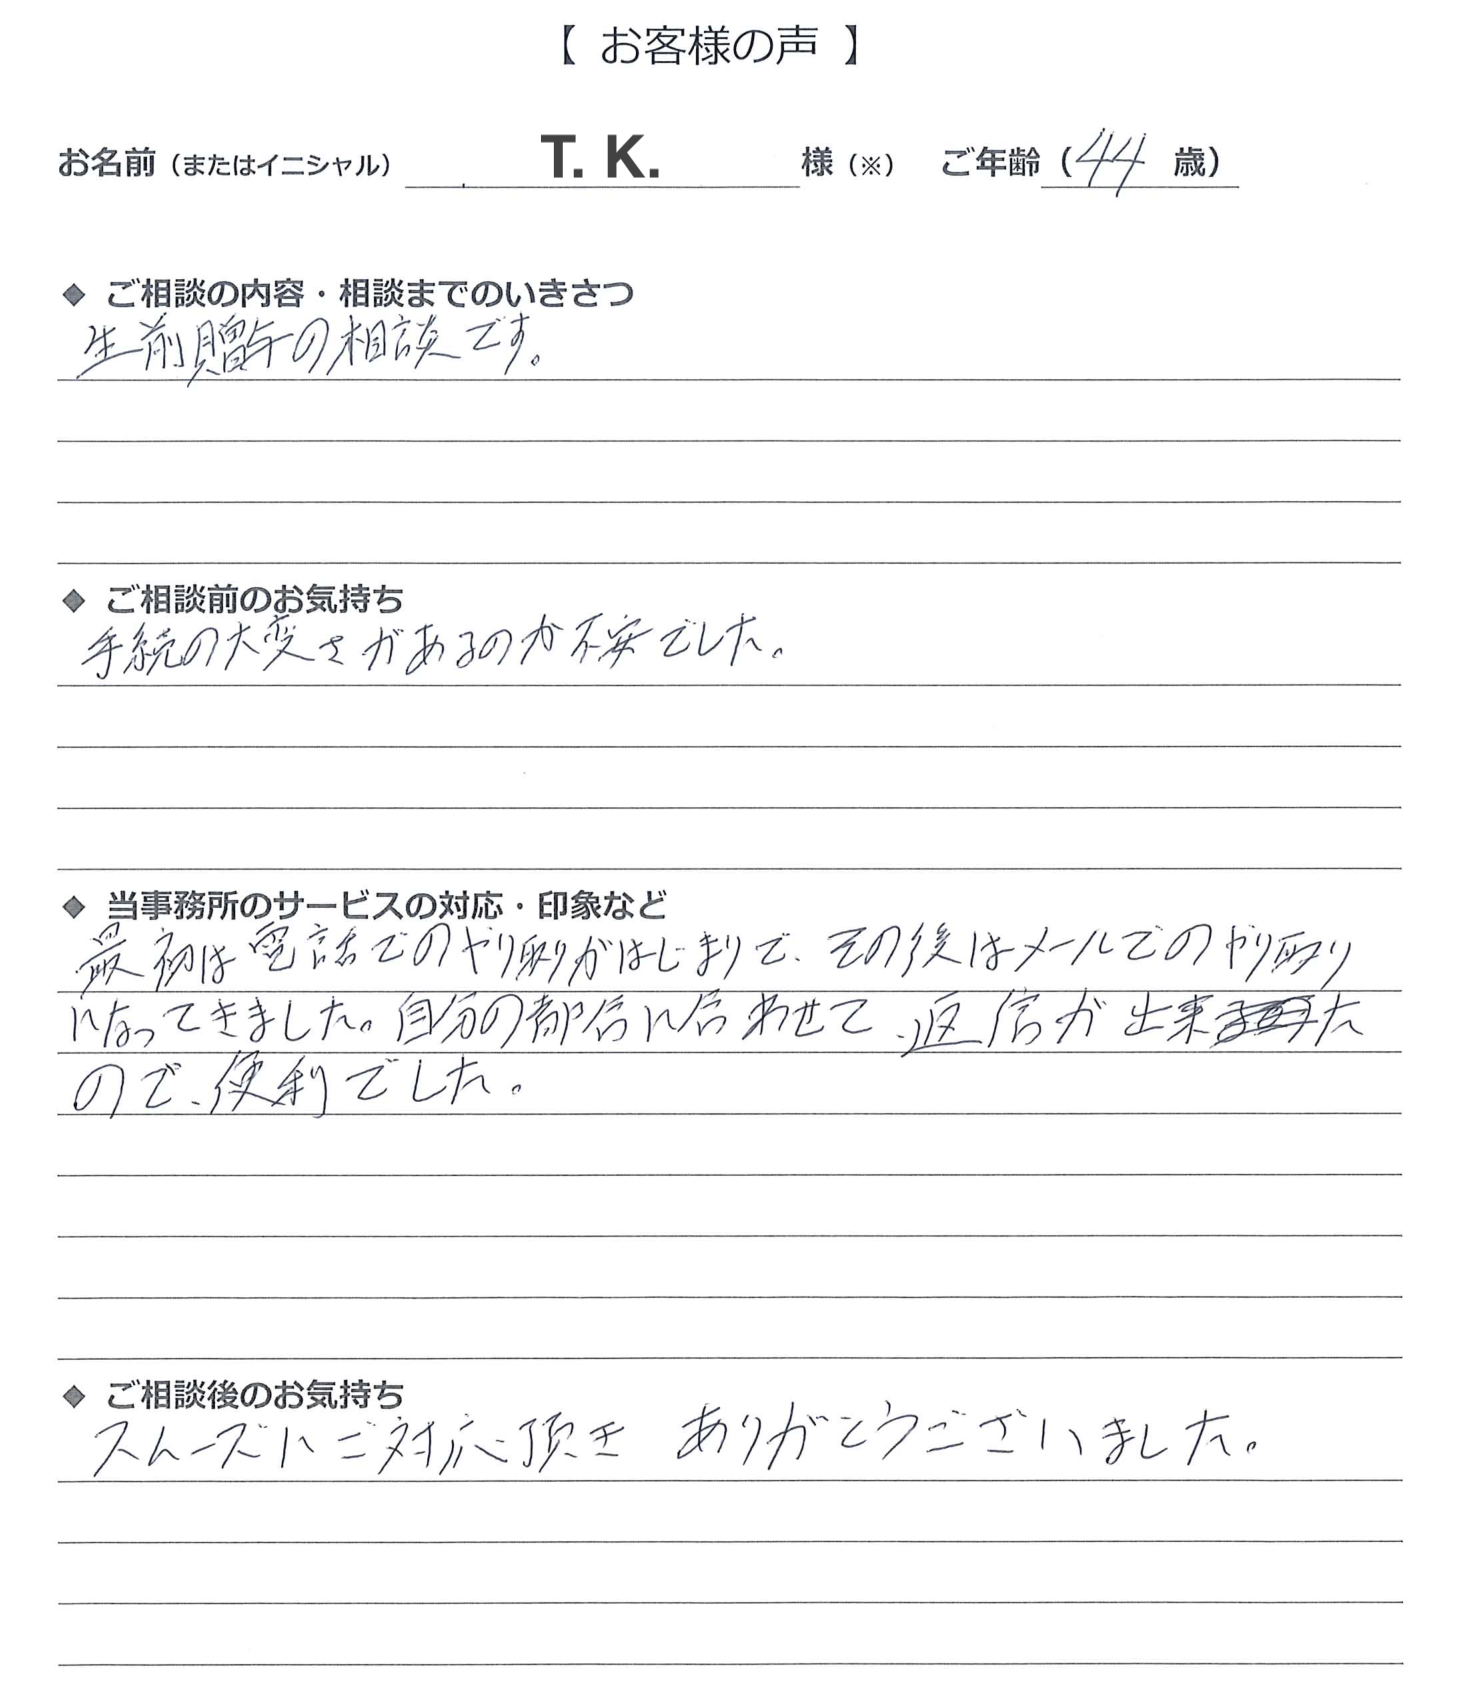 【 お客様の声 】
お名前（またはイニシャル） T. K. 様（※） ご年齢（44 歳）
◆ ご相談の内容・相談までのいきさつ
生前贈与の相談です。
◆ ご相談前のお気持ち
手続の大変さがあるのか不安でした。
◆ 当事務所のサービスの対応・印象など
最初は電話でのやり取りがはじまりで、その後はメールでのやり取り
になってきました。自分の都合に合わせて、返信が出来た
ので、便利でした。
◆ ご相談後のお気持ち
スムーズにご対応頂き ありがとうございました。